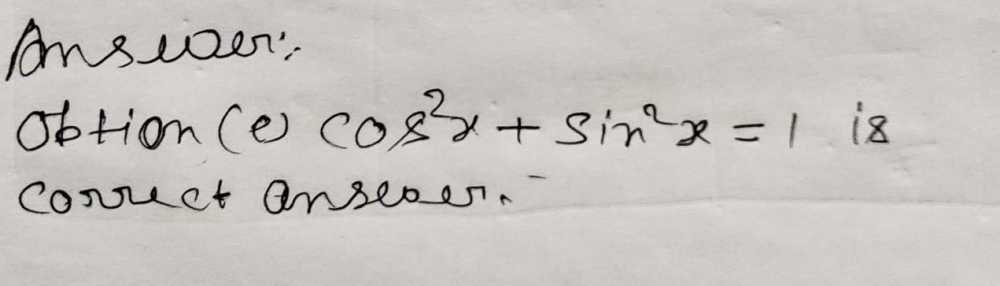 Answer:.
Obtion (e) cos²x + sin²x = 1 is
correct answer.